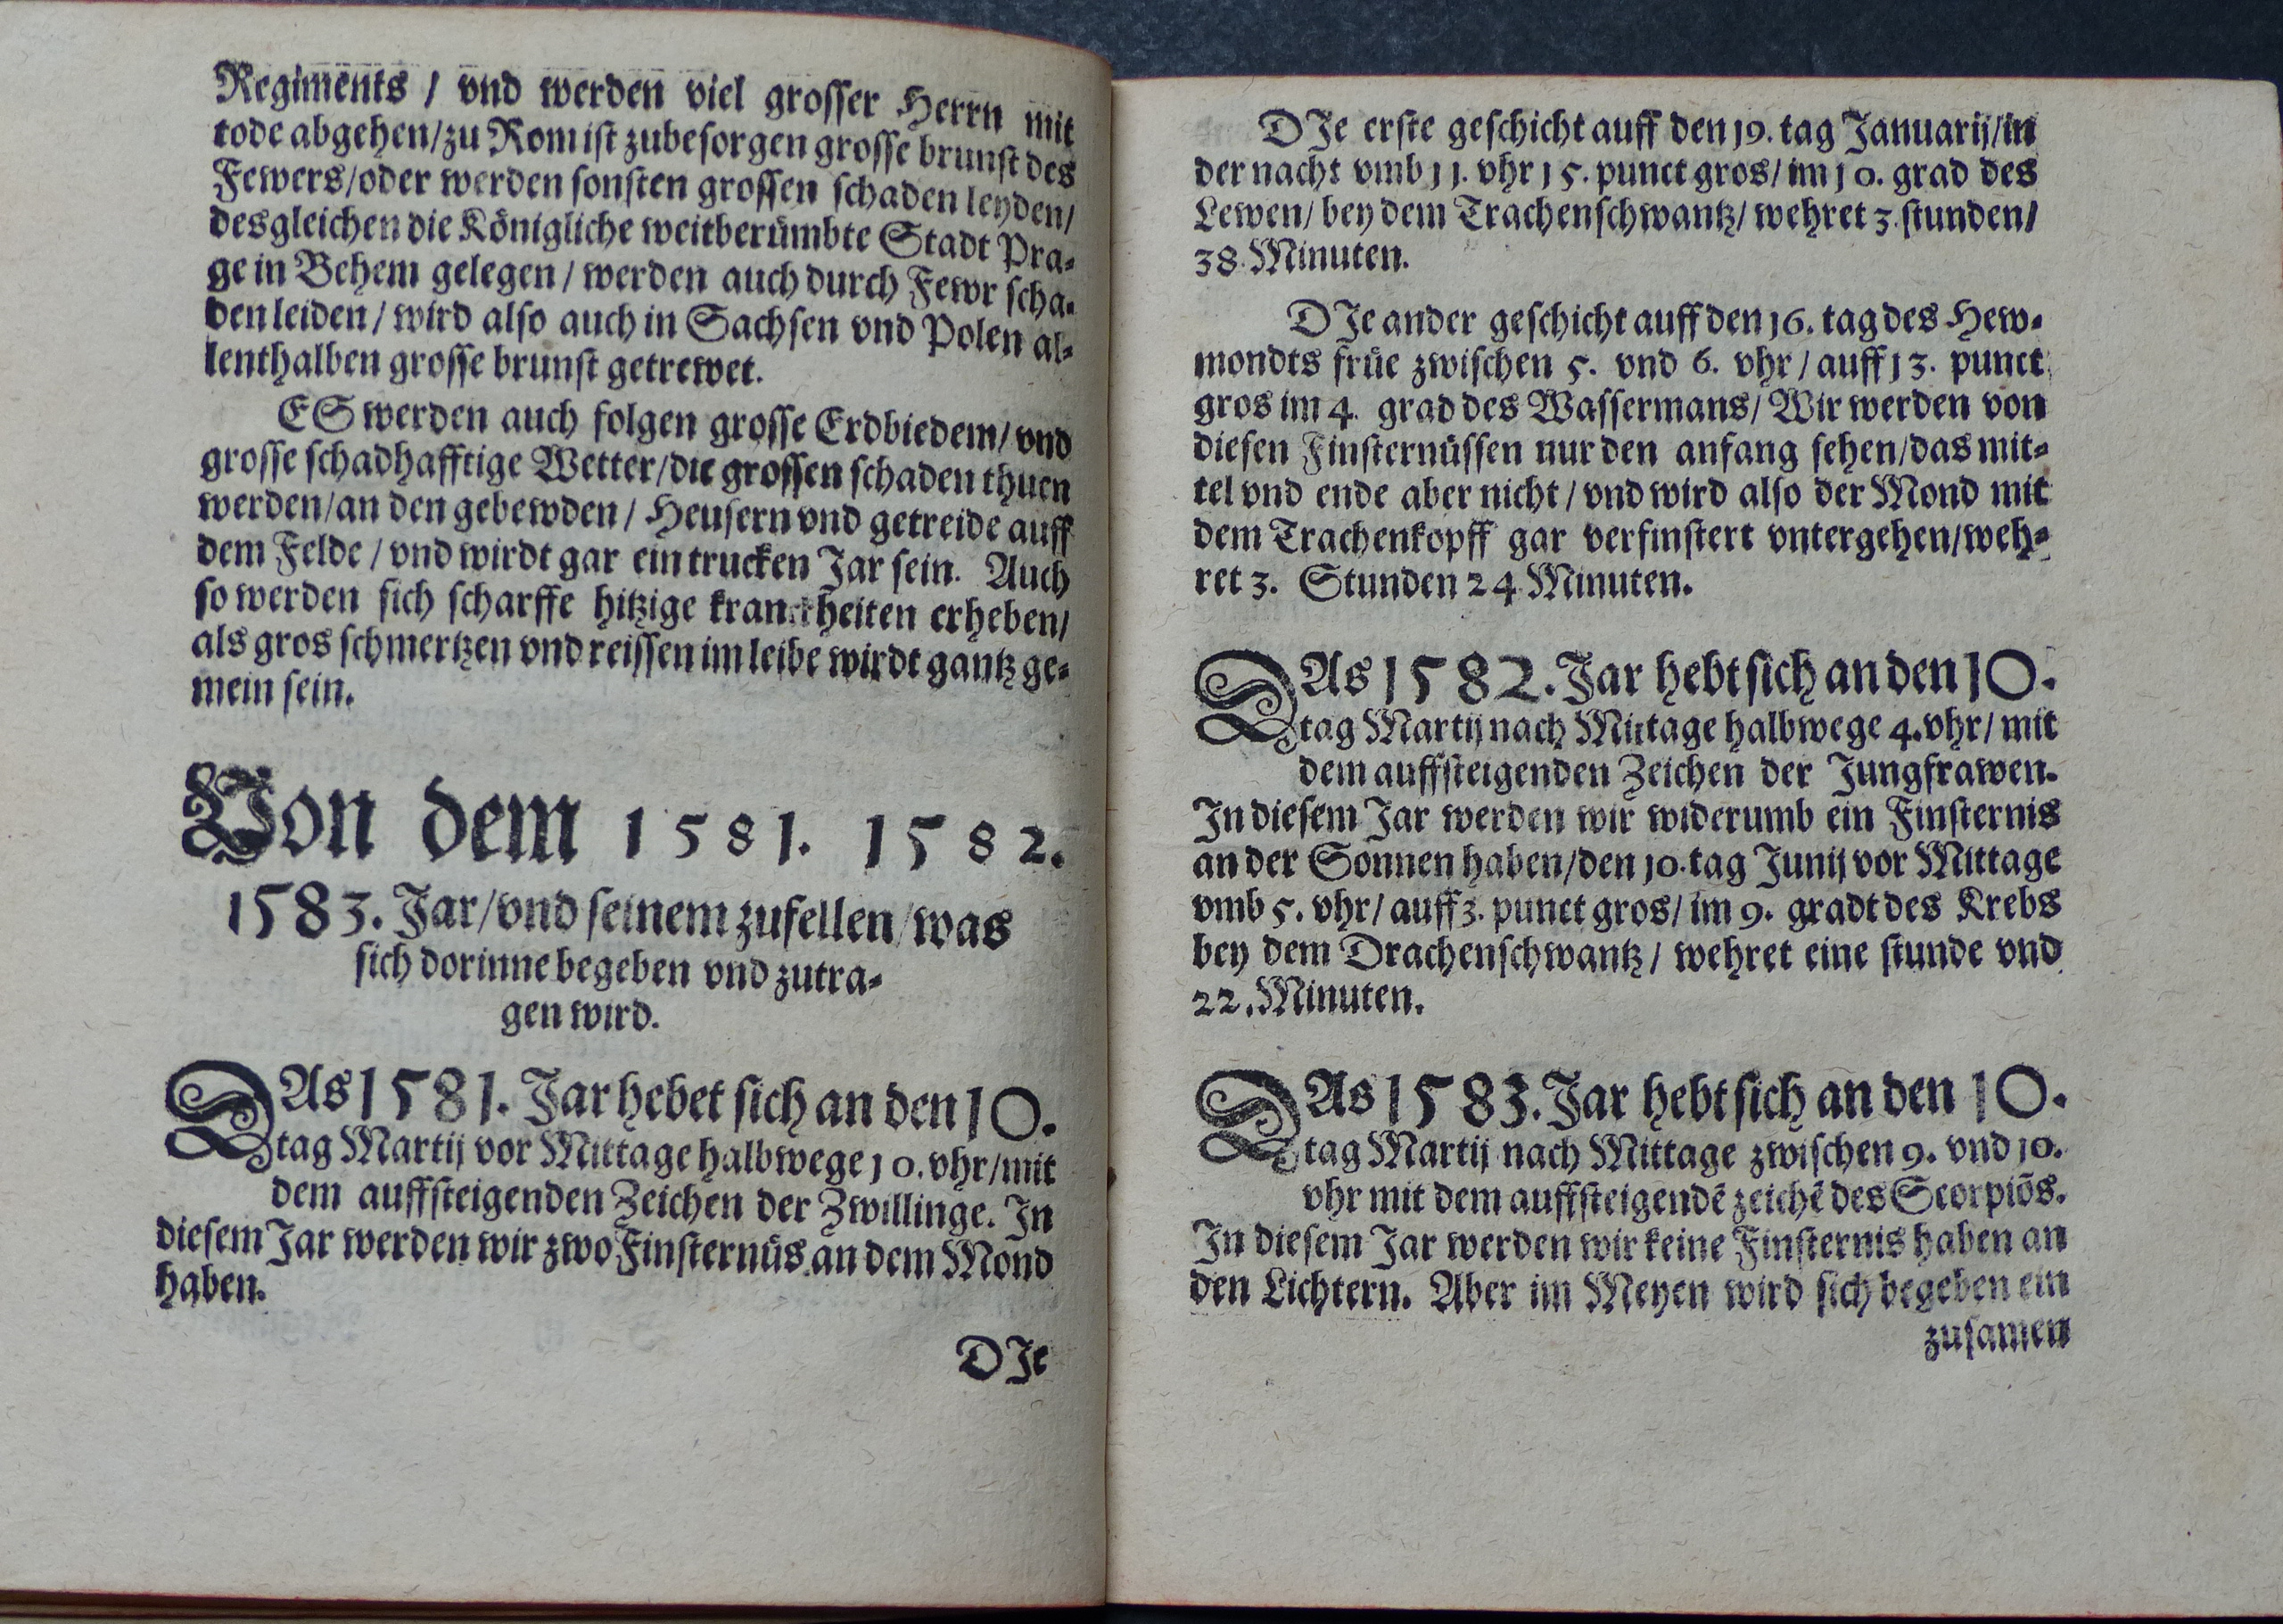 Regiments / vnd werden viel grosser Herrn mit
tode abgehen/zu Rom ist zubesorgen grosse brunst des
Fewers/oder werden sonsten grossen schaden leyden/
desgleichen die Königliche weitberümbte Stadt Pra-
ge in Behem gelegen / werden auch durch Fewr scha-
den leiden / wird also auch in Sachsen vnd Polen al-
lenthalben grosse brunst getrewet.
ES werden auch folgen grosse Erdbiedem/ vnd
grosse schadhafftige Wetter/die grossen schaden thuen
werden/an den gebewden / Heusern vnd getreide auff
dem Felde / vnd wirdt gar ein trucken Jar sein. Auch
so werden sich scharffe hitzige kranckheiten erheben/
als gros schmertzen vnd reissen im leibe wirdt gantz ge-
mein sein.
Von dem 1581. 1582.
1583. Jar/vnd seinem zufellen/was
sich dorinne begeben vnd zutra-
gen wird.
DAs 1581. Jar hebet sich an den 10.
tag Martij vor Mittage halbwege 10. vhr/mit
dem auffsteigenden Zeichen der Zwillinge. In
diesem Jar werden wir zwo Finsternüs an dem Mond
haben.
DJe
DJe erste geschicht auff den 19. tag Januarij/in
der nacht vmb 11. vhr 15. punct gros/ im 10. grad des
Lewen/ bey dem Trachenschwantz/ wehret 3. stunden/
38. Minuten.
DJe ander geschicht auff den 16. tag des Hew-
mondts früe zwischen 5. vnd 6. vhr / auff 13. punct
gros im 4. grad des Wassermans/ Wir werden von
diesen Finsternüssen nur den anfang sehen/das mit-
tel vnd ende aber nicht / vnd wird also der Mond mit
dem Trachenkopff gar verfinstert vntergehen/weh-
ret 3. Stunden 24 Minuten.
DAs 1582. Jar hebt sich an den 10.
tag Martij nach Mittage halbwege 4. vhr/ mit
dem auffsteigenden Zeichen der Jungfrawen.
In diesem Jar werden wir widerumb ein Finsternis
an der Sonnen haben/den 10. tag Junij vor Mittage
vmb 5. vhr/ auff 3. punct gros/ im 9. gradt des Krebs
bey dem Drachenschwantz / wehret eine stunde vnd
22. Minuten.
DAs 1583. Jar hebt sich an den 10.
tag Martij nach Mittage zwischen 9. vnd 10.
vhr mit dem auffsteigendē zeichē des Scorpiōs.
In diesem Jar werden wir keine Finsternis haben an
den Lichtern. Aber im Meyen wird sich begeben ein
zusamen